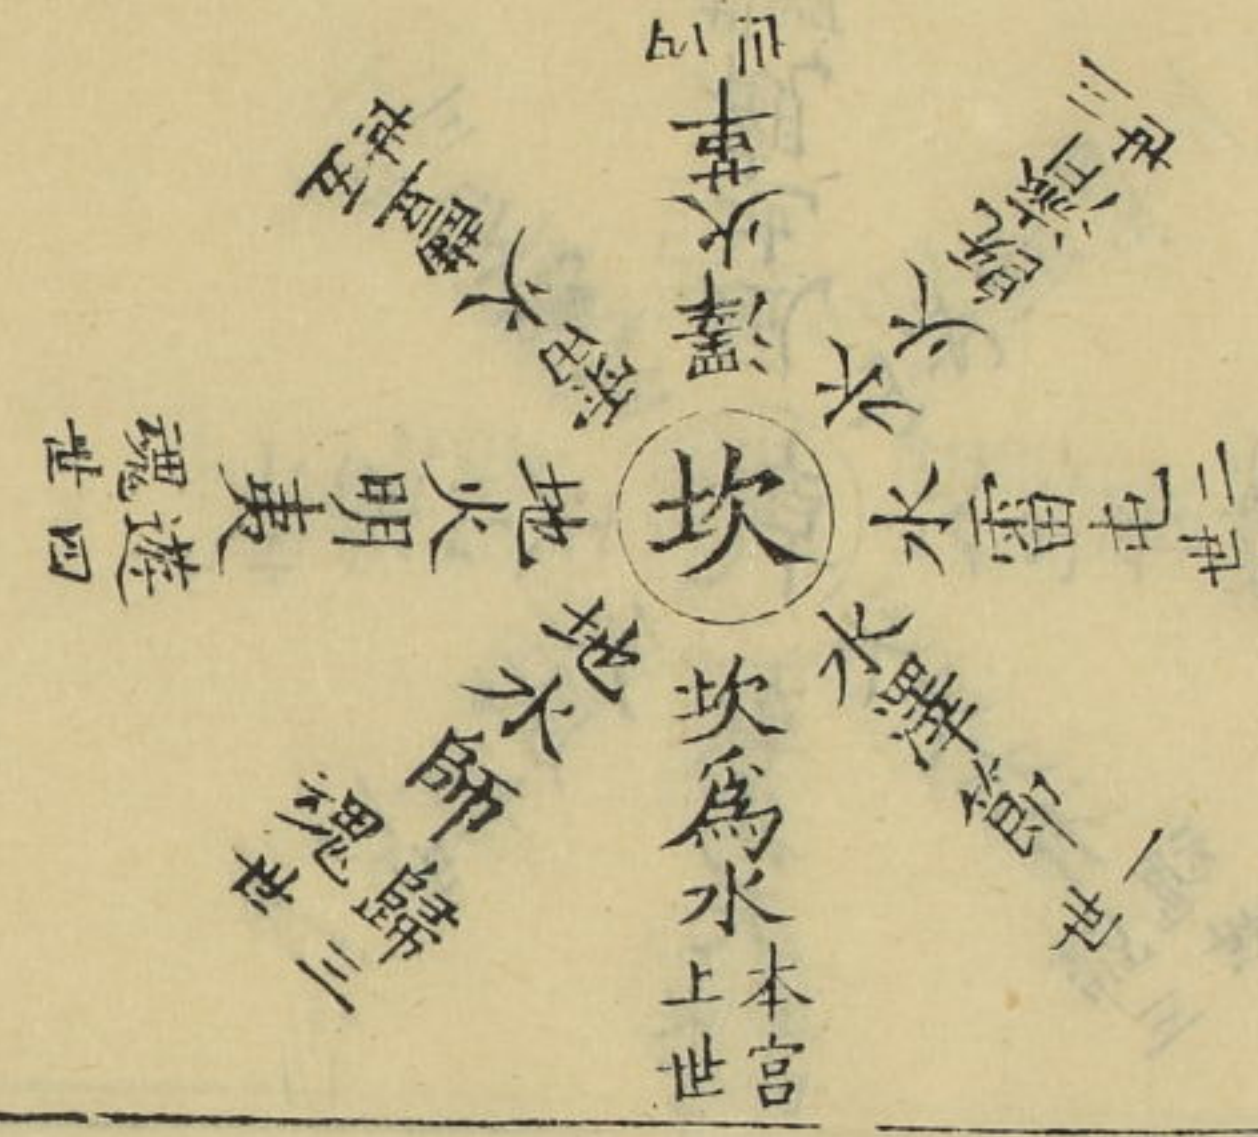 坎
坎爲水
本宮
上世
水澤節
一世
水雷屯
二世
水火旣濟
三世
澤火革
四世
雷火豐
五世
地火明夷
遊魂
四世
地水師
歸魂
三世